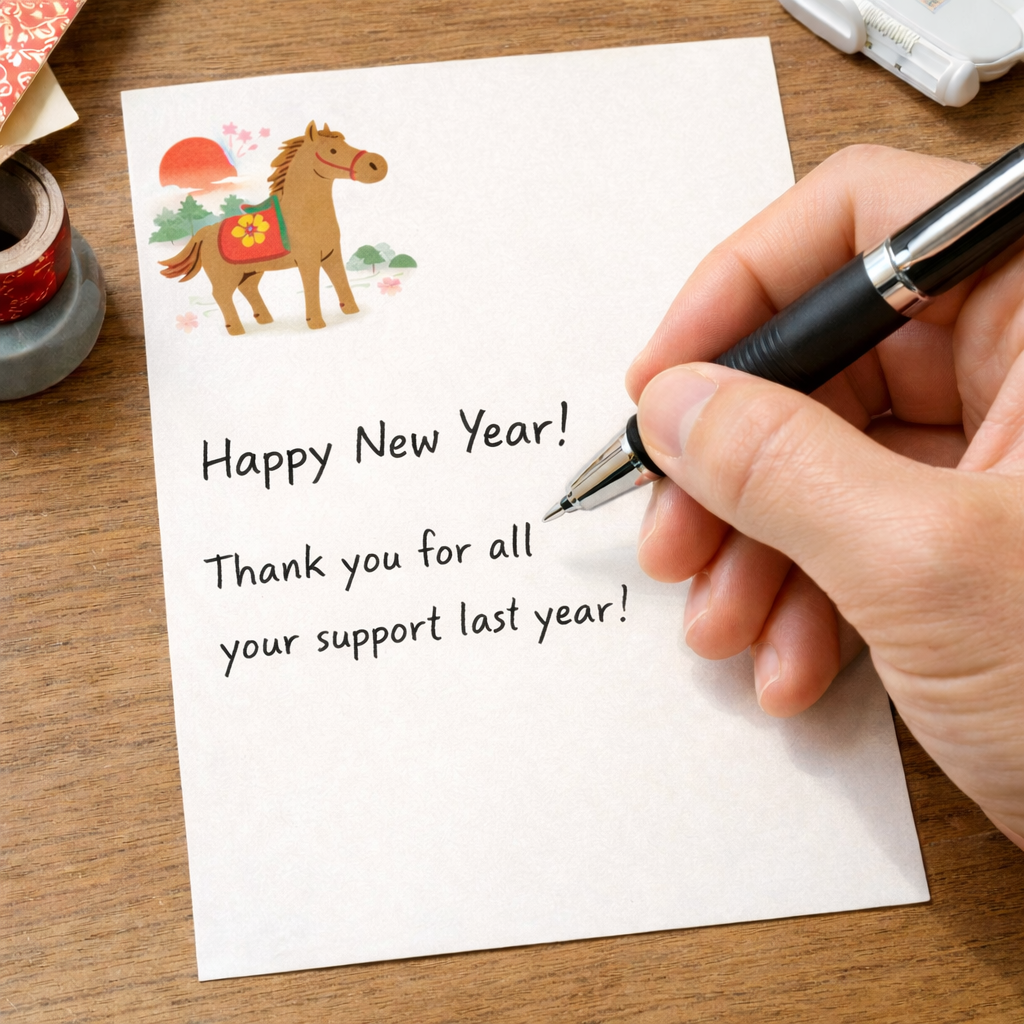 Happy New Year!
Thank you for all
your support last year!